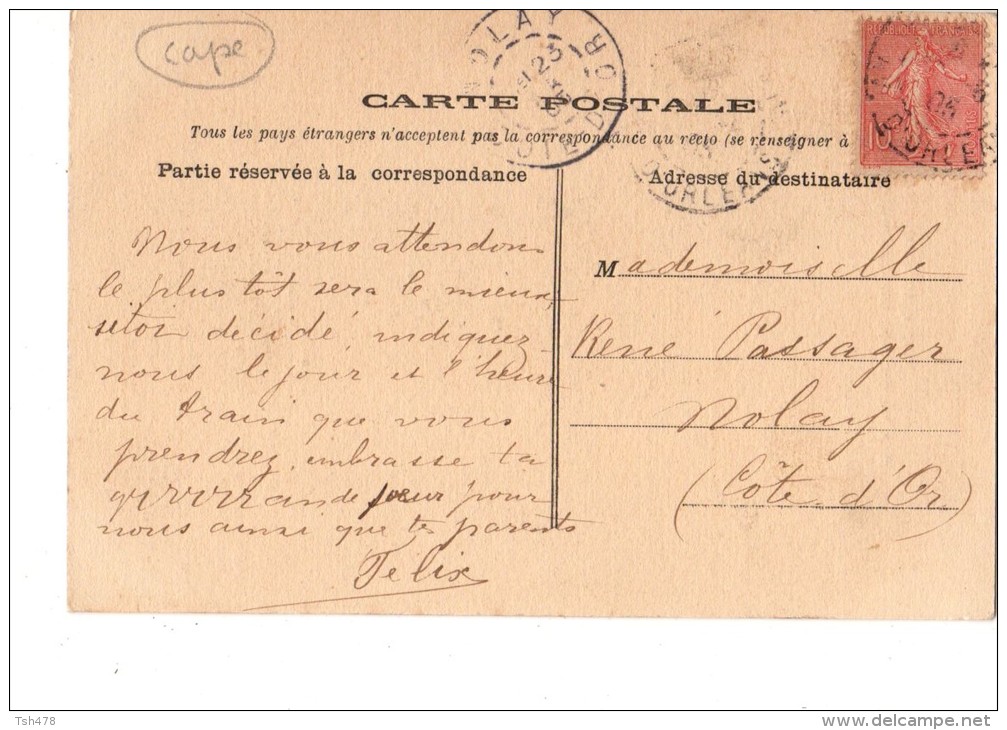 cape
NOLAY
CÔTE D'OR
CARTE POSTALE
Tous les pays étrangers n'acceptent pas la correspondance au recto (se renseigner à
Partie réservée à la correspondance
Adresse du destinataire
REPUBLIQUE FRANÇAISE
10
Nous vous attendons
le plus tôt sera le mieux,
sitôt décidé, indiquez
nous le jour et l'heure
du train que vous
prendrez, embrasse ta
grrrrrande sœur pour
nous ainsi que tes parents
Félix
Mademoiselle
René Passager
Nolay
(Côte d'Or)
Tsh478
www.delcampe.net